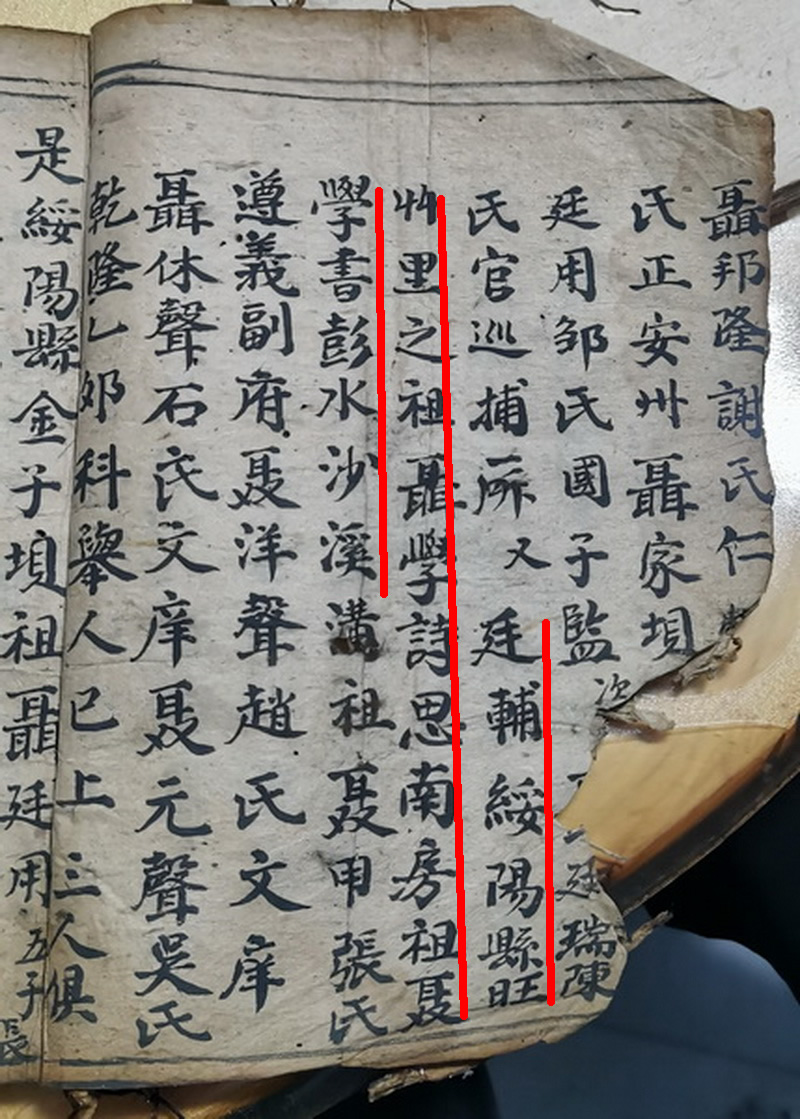 聶邦隆謝氏仁
氏正安州聶家垻
廷用邹氏國子監次
廷瑞陳
氏官巡捕所又廷輔綏陽縣旺
艸里之祖聶學詩思南房祖聂
學書彭水沙溪溝祖聂甲張氏
遵義副府聂洋聲趙氏文庠
聶休聲石氏文庠聂元聲吴氏
乾隆乙夘科舉人巳上三人俱
是綏陽縣金子垻祖聶廷用五子長